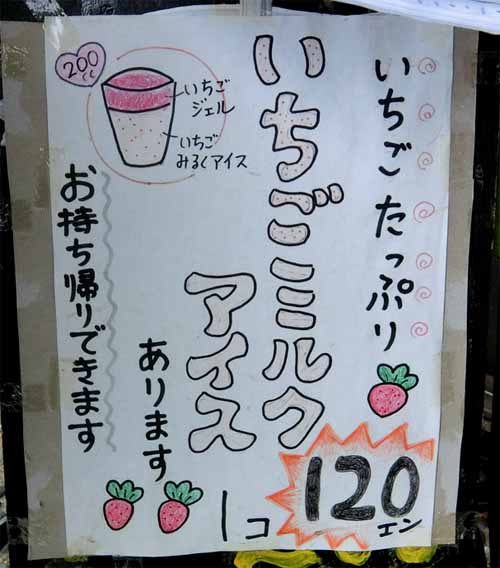 いちごたっぷり
いちごミルク
アイス
あります
1コ
120
エン
200
cc
いちご
ジェル
いちご
みるくアイス
お持ち帰りできます